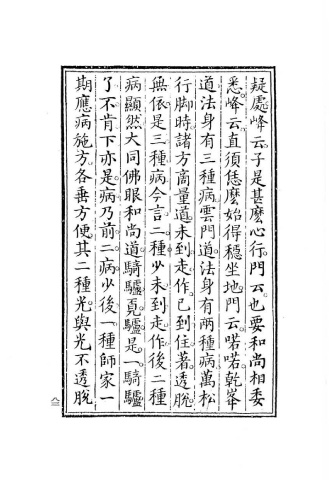 疑處峰云子是甚麽心行門云也要和尚相委
悉峰云直須恁麽始得穩坐地門云喏喏乾峯
道法身有三種病雲門道法身有兩種病萬松
行脚時諸方啇量道未到走作已到住著透脫
無依是三種病今言二種少未到走作後二種
病顯然大同佛眼和尚道騎驢覓驢是一騎驢
了不肯下亦是病乃前二病少後一種師家一
期應病施方各垂方便其二種光與光不透脫